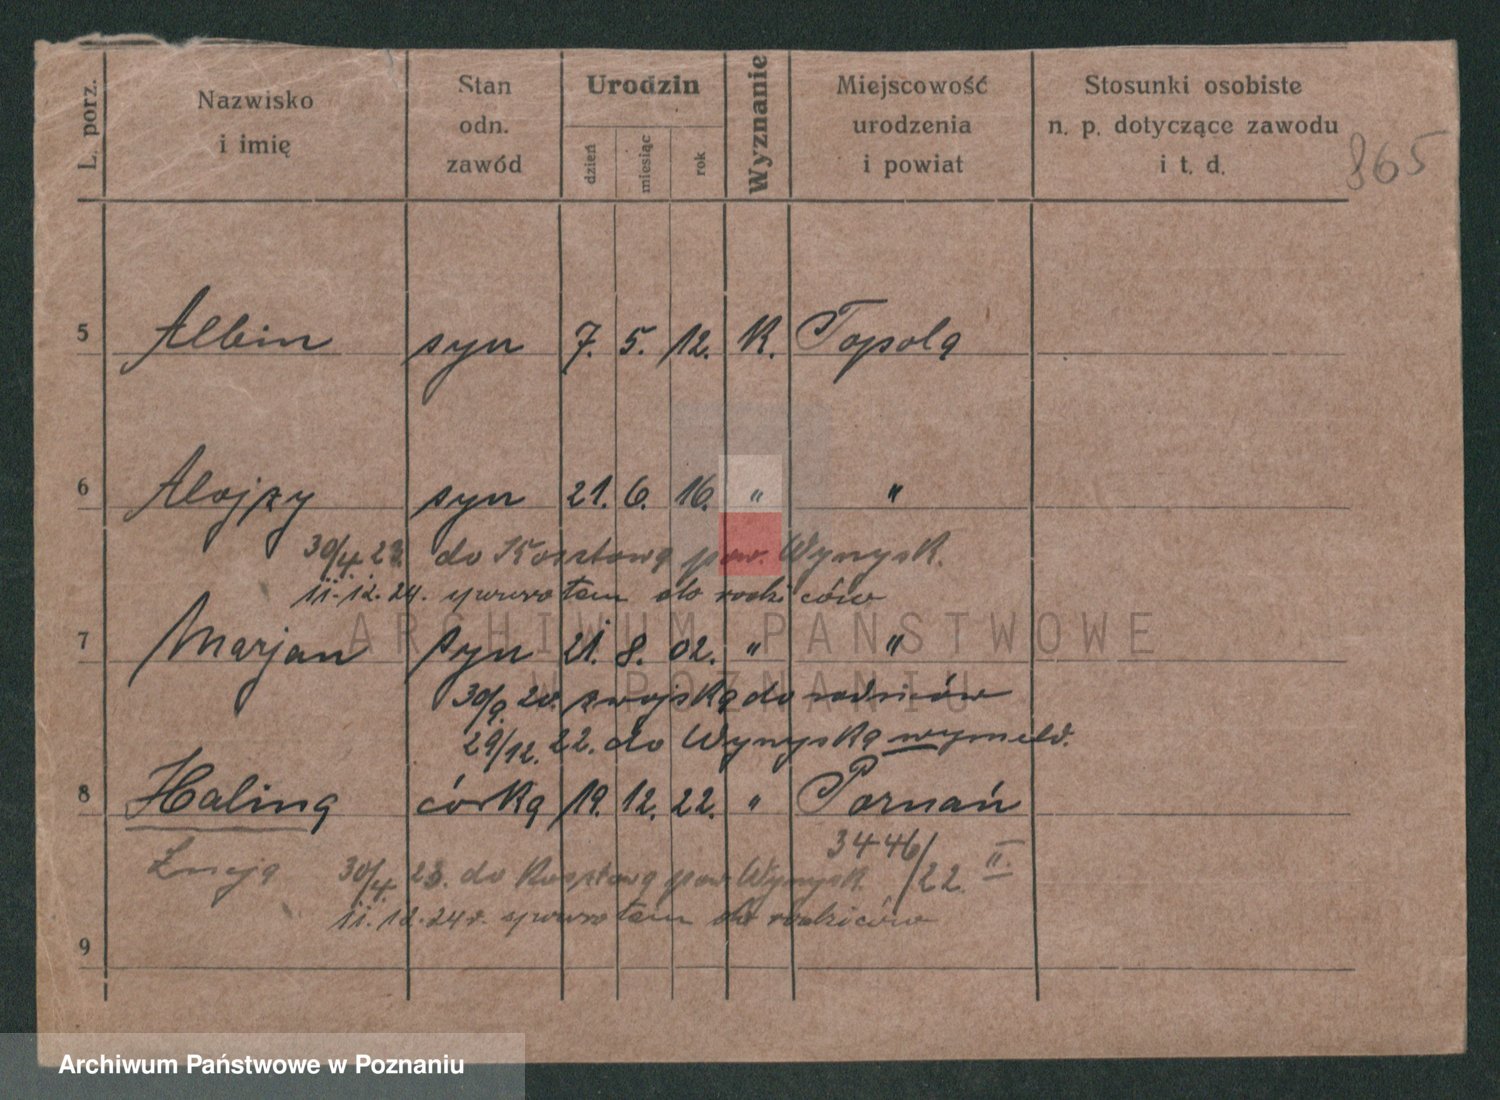 L. porz. Nazwisko i imię Stan odn. zawód Urodzin dzień miesiąc rok Wyznanie Miejscowość urodzenia i powiat Stosunki osobiste n. p. dotyczące zawodu i t. d.
865
5 Albin syn 7. 5. 12. K. Topola
6 Alojzy syn 21. 6. 16. " "
30/4. 23. do Kosztowa pow. Wyrzysk.
11.12.24. spowrotem do rodziców
7 Marjan syn 21. 8. 02. " "
30/9. 20. z wojska do rodziców
29/12. 22. do Wyrzyska wymeld.
8 Halina córka 19. 12. 22. " Poznań
3446/22. II.
30/4. 23. do Kosztowa pow. Wyrzysk.
11.12.24r. spowrotem do rodziców
9
ARCHIWUM PAŃSTWOWE
W POZNANIU
Archiwum Państwowe w Poznaniu